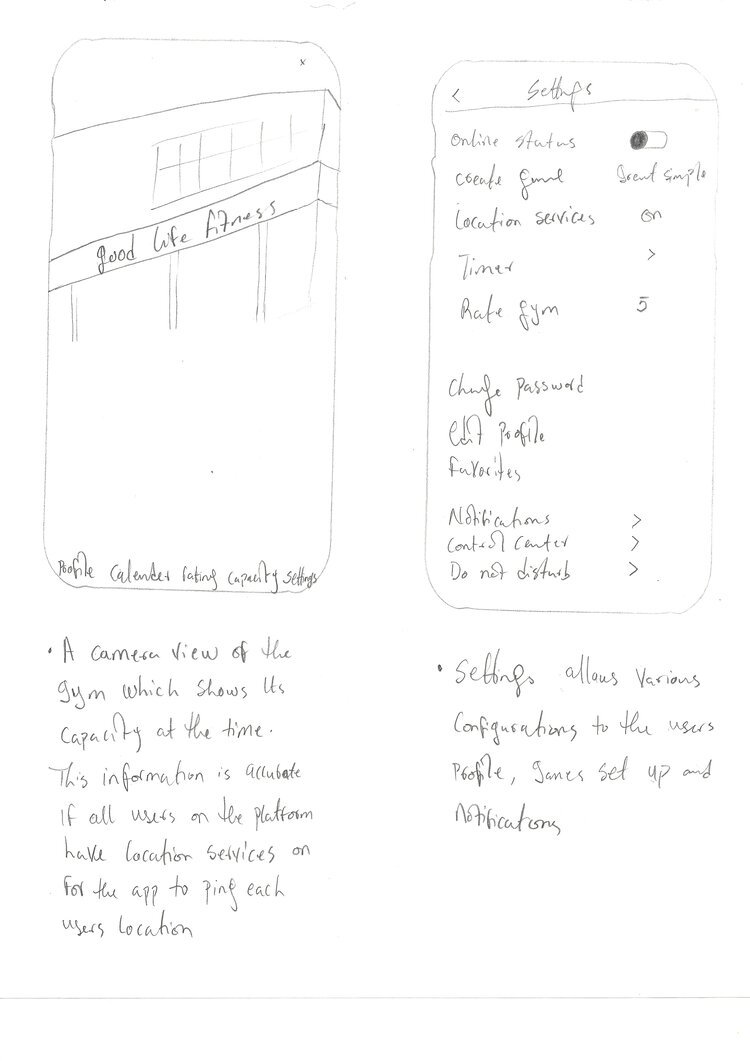 x
good life fitness
Profile Calender rating capacity settings
• A camera view of the
gym which shows Its
capacity at the time.
This information is accurate
If all users on the platform
have location services on
for the app to ping each
users location
< Settings
Online status
Create game
Location services on
Timer >
Rate gym 5
Change Password
Edit Profile
Favorites
Notifications >
Control Center >
Do not disturb >
• Settings allows various
Configurations to the users
Profile, games set up and
Notifications